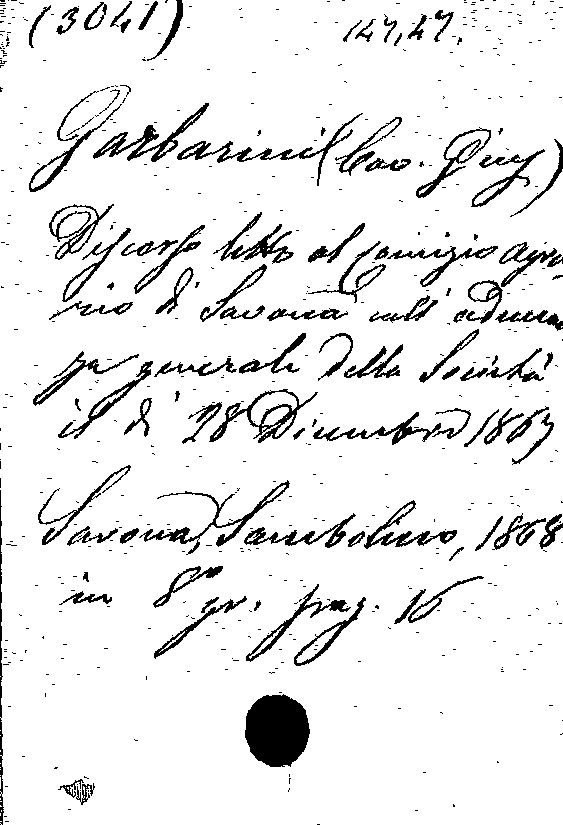 (3041) 147,47.
Garbarini (Cav. Giu.)
Discorso letto al comizio agra
rio di Savona nell' adunan
za generale della Società
il dì 28 Dicembre 1867
Savona, Sambolino, 1868
in 8° gr. pag. 16